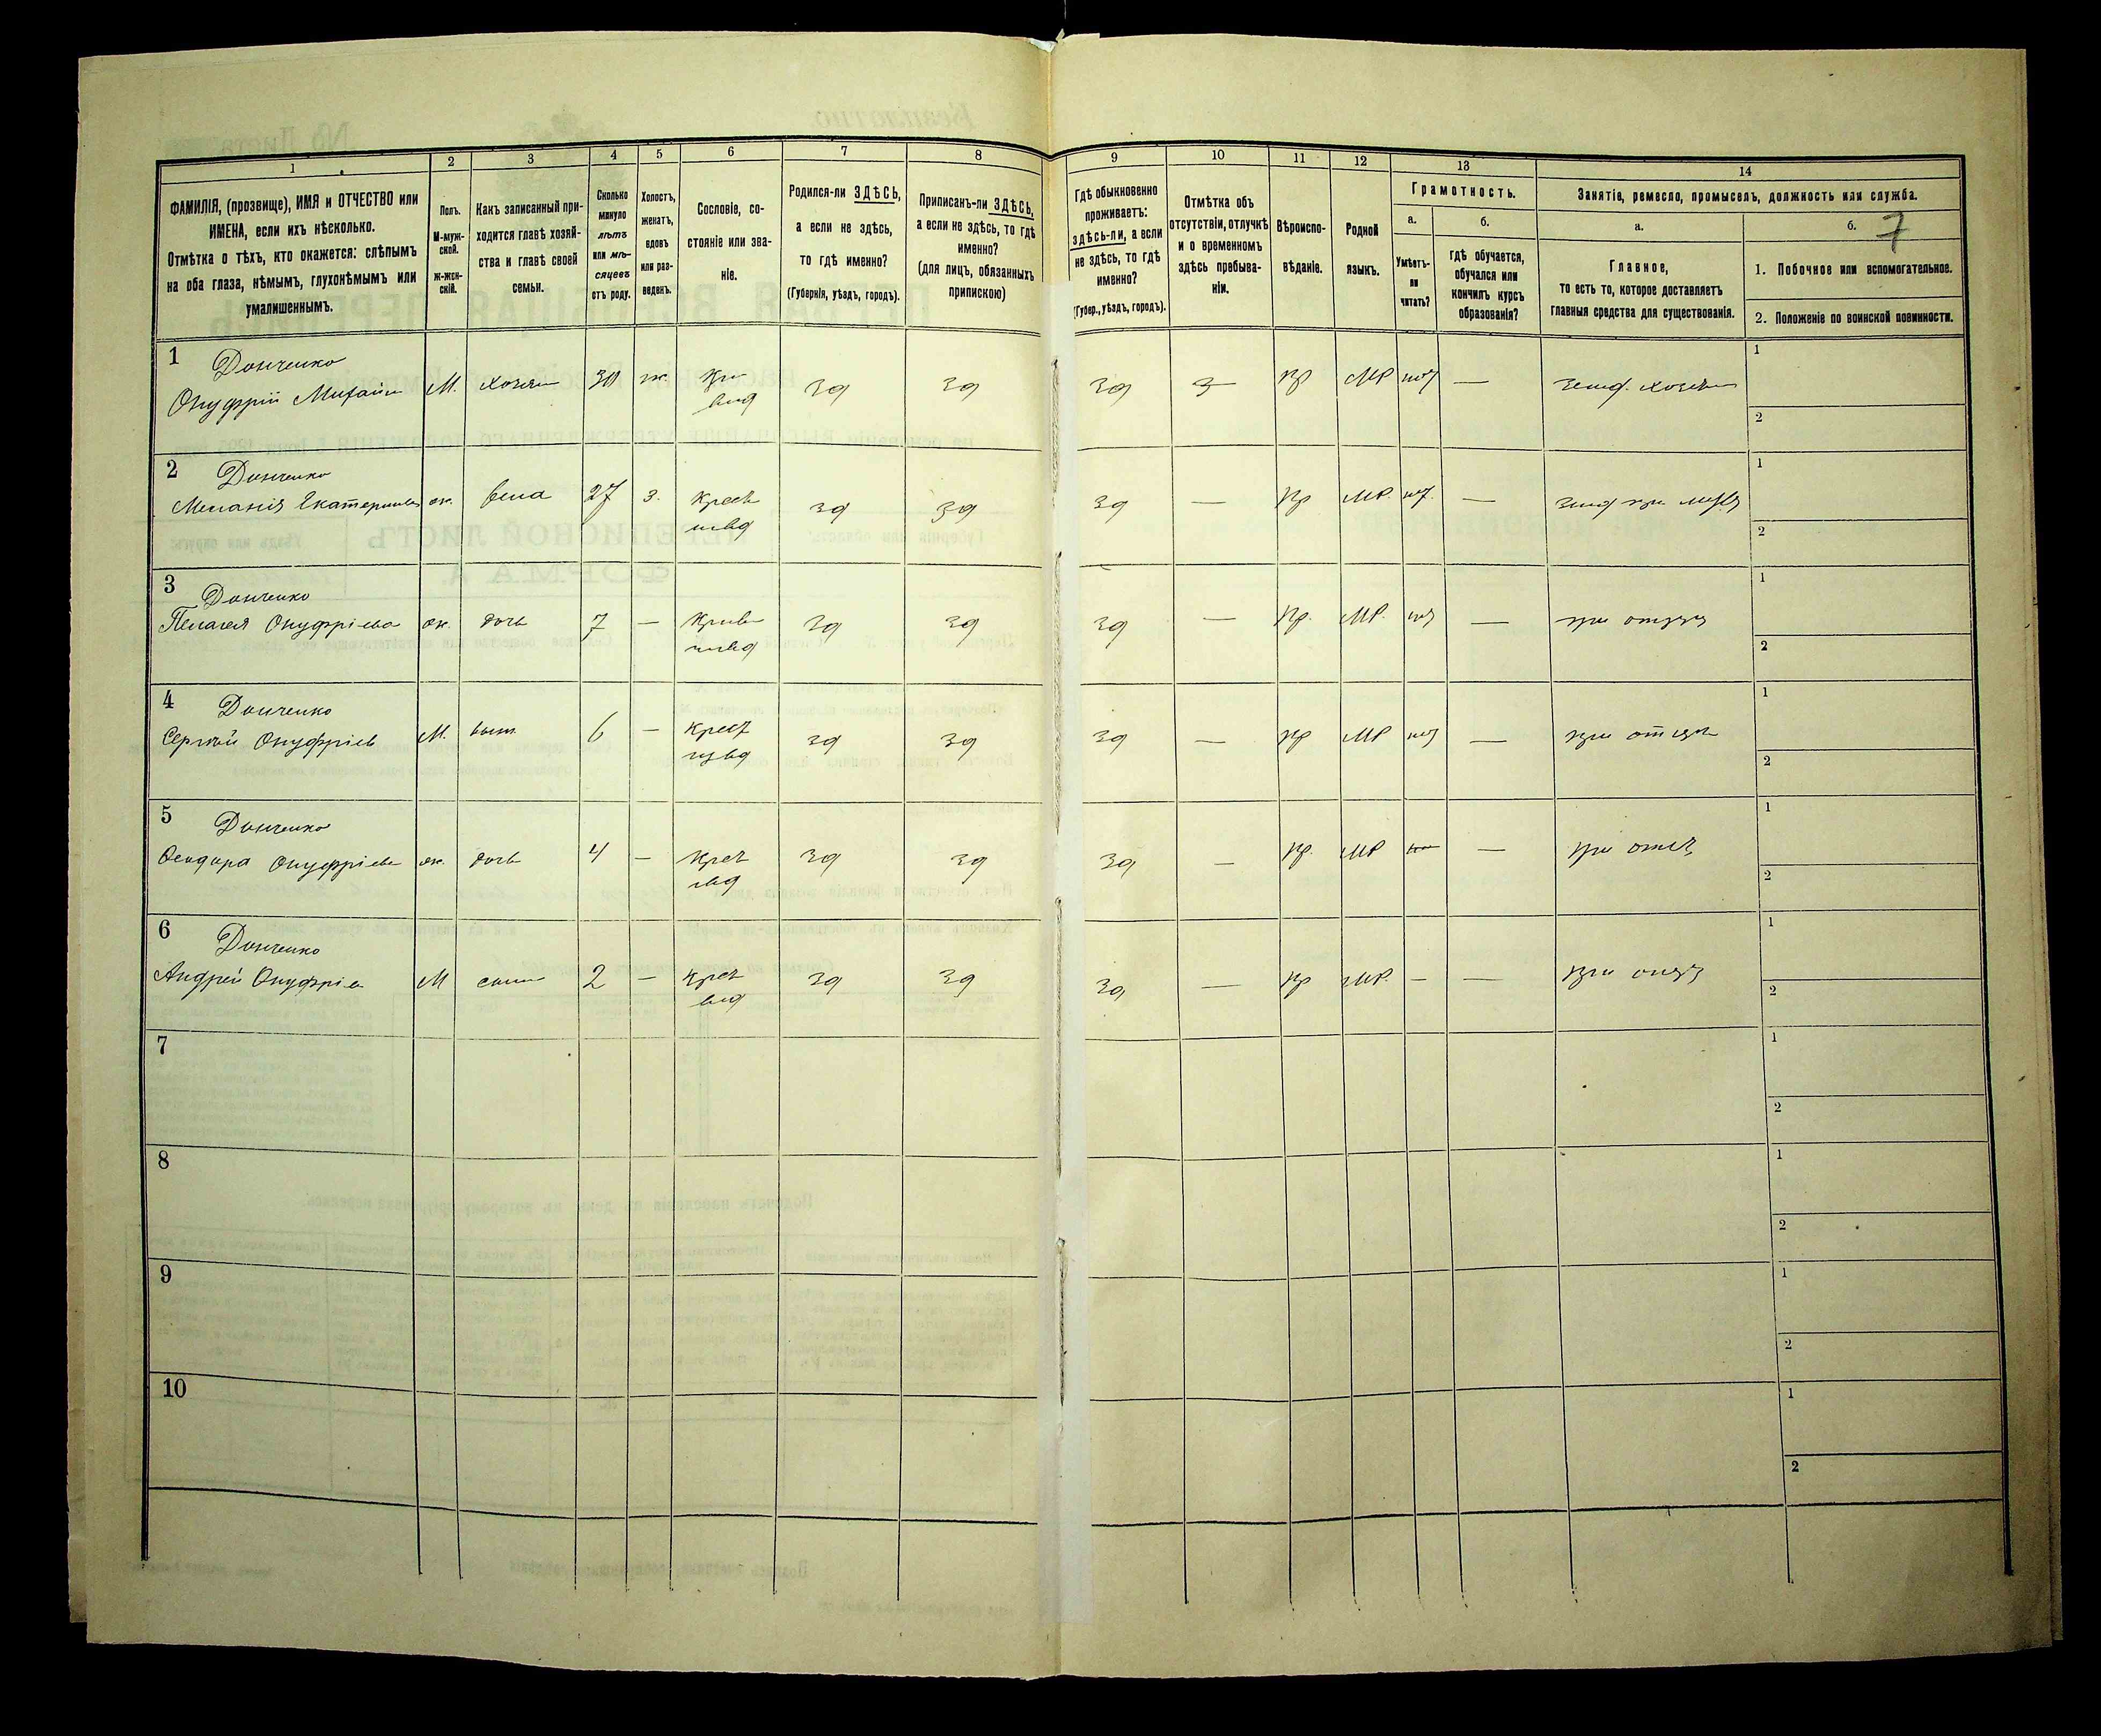 1
2
3
4
5
6
7
8
9
10
11
12
13
14
ФАМИЛІЯ, (прозвище), ИМЯ и ОТЧЕСТВО или
ИМЕНА, если ихъ нѣсколько.
Отмѣтка о тѣхъ, кто окажется: слѣпымъ
на оба глаза, нѣмымъ, глухонѣмымъ или
умалишеннымъ.
Полъ.
М-муж-
ской.
ж-жен-
скій.
Какъ записанный при-
ходится главѣ хозяй-
ства и главѣ своей
семьи.
Сколько
минуло
лѣтъ
или мѣ-
сяцевъ
отъ роду.
Холостъ,
женатъ,
вдовъ
или раз-
веденъ.
Сословіе, со-
стояніе или зва-
ніе.
Родился-ли ЗДѢСЬ,
а если не здѣсь,
то гдѣ именно?
(Губернія, уѣздъ, городъ).
Приписанъ-ли ЗДѢСЬ,
а если не здѣсь, то гдѣ
именно?
(для лицъ, обязанныхъ
припискою)
Гдѣ обыкновенно
проживаетъ:
здѣсь-ли, а если
не здѣсь, то гдѣ
именно?
(Губер., уѣздъ, городъ).
Отмѣтка объ
отсутствіи, отлучкѣ
и о временномъ
здѣсь пребыва-
ніи.
Вѣроиспо-
вѣданіе.
Родной
языкъ.
Грамотность.
а.
Умѣетъ-
ли
читать?
б.
гдѣ обучается,
обучался или
кончилъ курсъ
образованія?
Занятіе, ремесло, промыселъ, должность или служба.
а.
Главное,
то есть то, которое доставляетъ
главныя средства для существованія.
б. 7
1. Побочное или вспомогательное.
2. Положеніе по воинской повинности.
1 Донченко
Онуфрій М. хозяин 30 зд зд зд — пр МР —
1
2
2 Донченко
Меланія ж. жена 27 з. крест зд зд зд — пр МР. —
1
2
3 Донченко
Пелагея Онуфріева ж. дочь 7 — зд зд зд — пр. МР. — при отцѣ
1
2
4 Донченко
Сергѣй Онуфріев М. 6 — крест зд зд зд — пр МР — при отцѣ
1
2
5 Донченко
Феодора Онуфріева ж. дочь 4 — крест зд зд зд — пр. МР — при отцѣ
1
2
6 Донченко
Андрей Онуфріев М сын 2 — крест зд зд зд — пр МР. — — при отцѣ
1
2
7
1
2
8
1
2
9
1
2
10
1
2